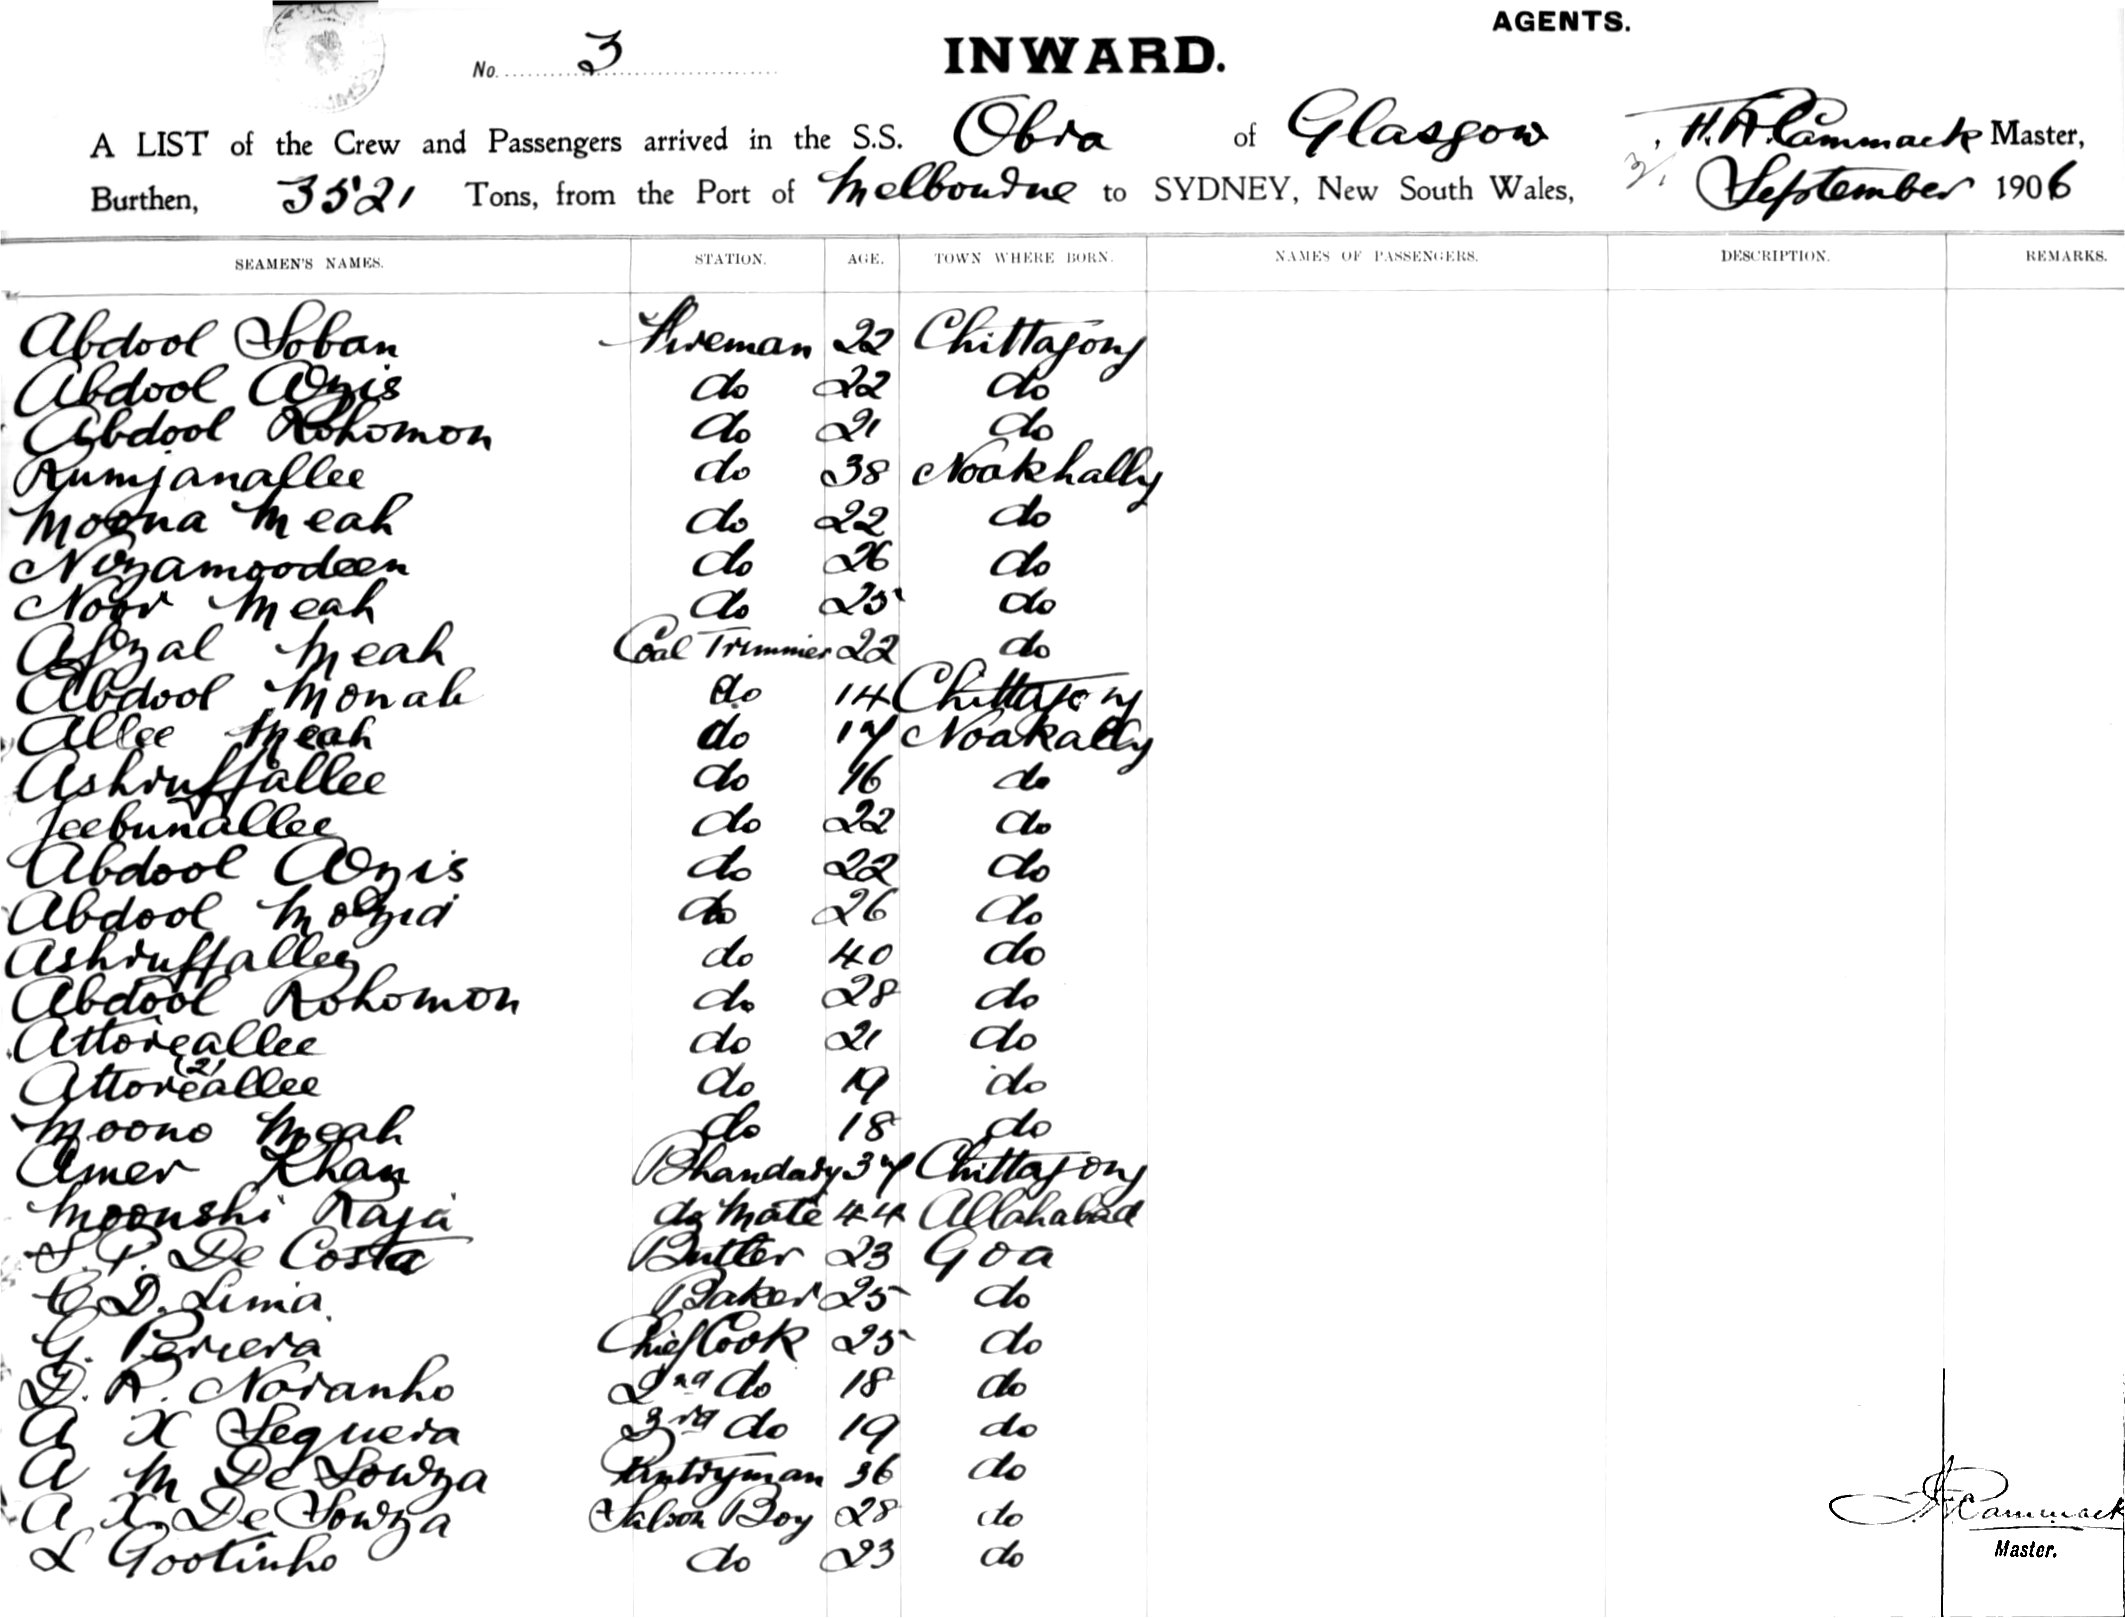 AGENTS.
No. 3
INWARD.
A LIST of the Crew and Passengers arrived in the S.S. Obra of Glasgow, H. A. Cammack Master,
Burthen, 3521 Tons, from the Port of Melbourne to SYDNEY, New South Wales, September 1906
SEAMEN'S NAMES. STATION. AGE. TOWN WHERE BORN. NAMES OF PASSENGERS. DESCRIPTION. REMARKS.
Abdool Soban Fireman 22 Chittagong
Abdool Azis do 22 do
Abdool Rohomon do 21 do
Rumjanallee do 38 Noakhally
Moona Meah do 22 do
Nizamoodeen do 26 do
Noor Meah do 25 do
Afzal Meah Coal Trimmer 22 do
Abdool Monab do 14 Chittagong
Allee Meah do 17 Noakally
Ashruffallee do 16 do
Jeebunallee do 22 do
Abdool Azis do 22 do
Abdool Mozid do 26 do
Ashruffallee do 40 do
Abdool Rohomon do 28 do
Attoreallee do 21 do
Attoreallee (2) do 19 do
Moono Meah do 18 do
Amer Khan Bhandary 37 Chittagong
Moonshi Raja do Mate 44 Allahabad
S. P. De Costa Butler 23 Goa
C. D. Lima Baker 25 do
G. Periera Chief Cook 25 do
D. R. Noranho 2nd do 18 do
A X Sequera 3rd do 19 do
A M De Sowza Pantryman 36 do
A X De Sowza Saloon Boy 28 do
L Gootinho do 23 do
Cammack
Master.